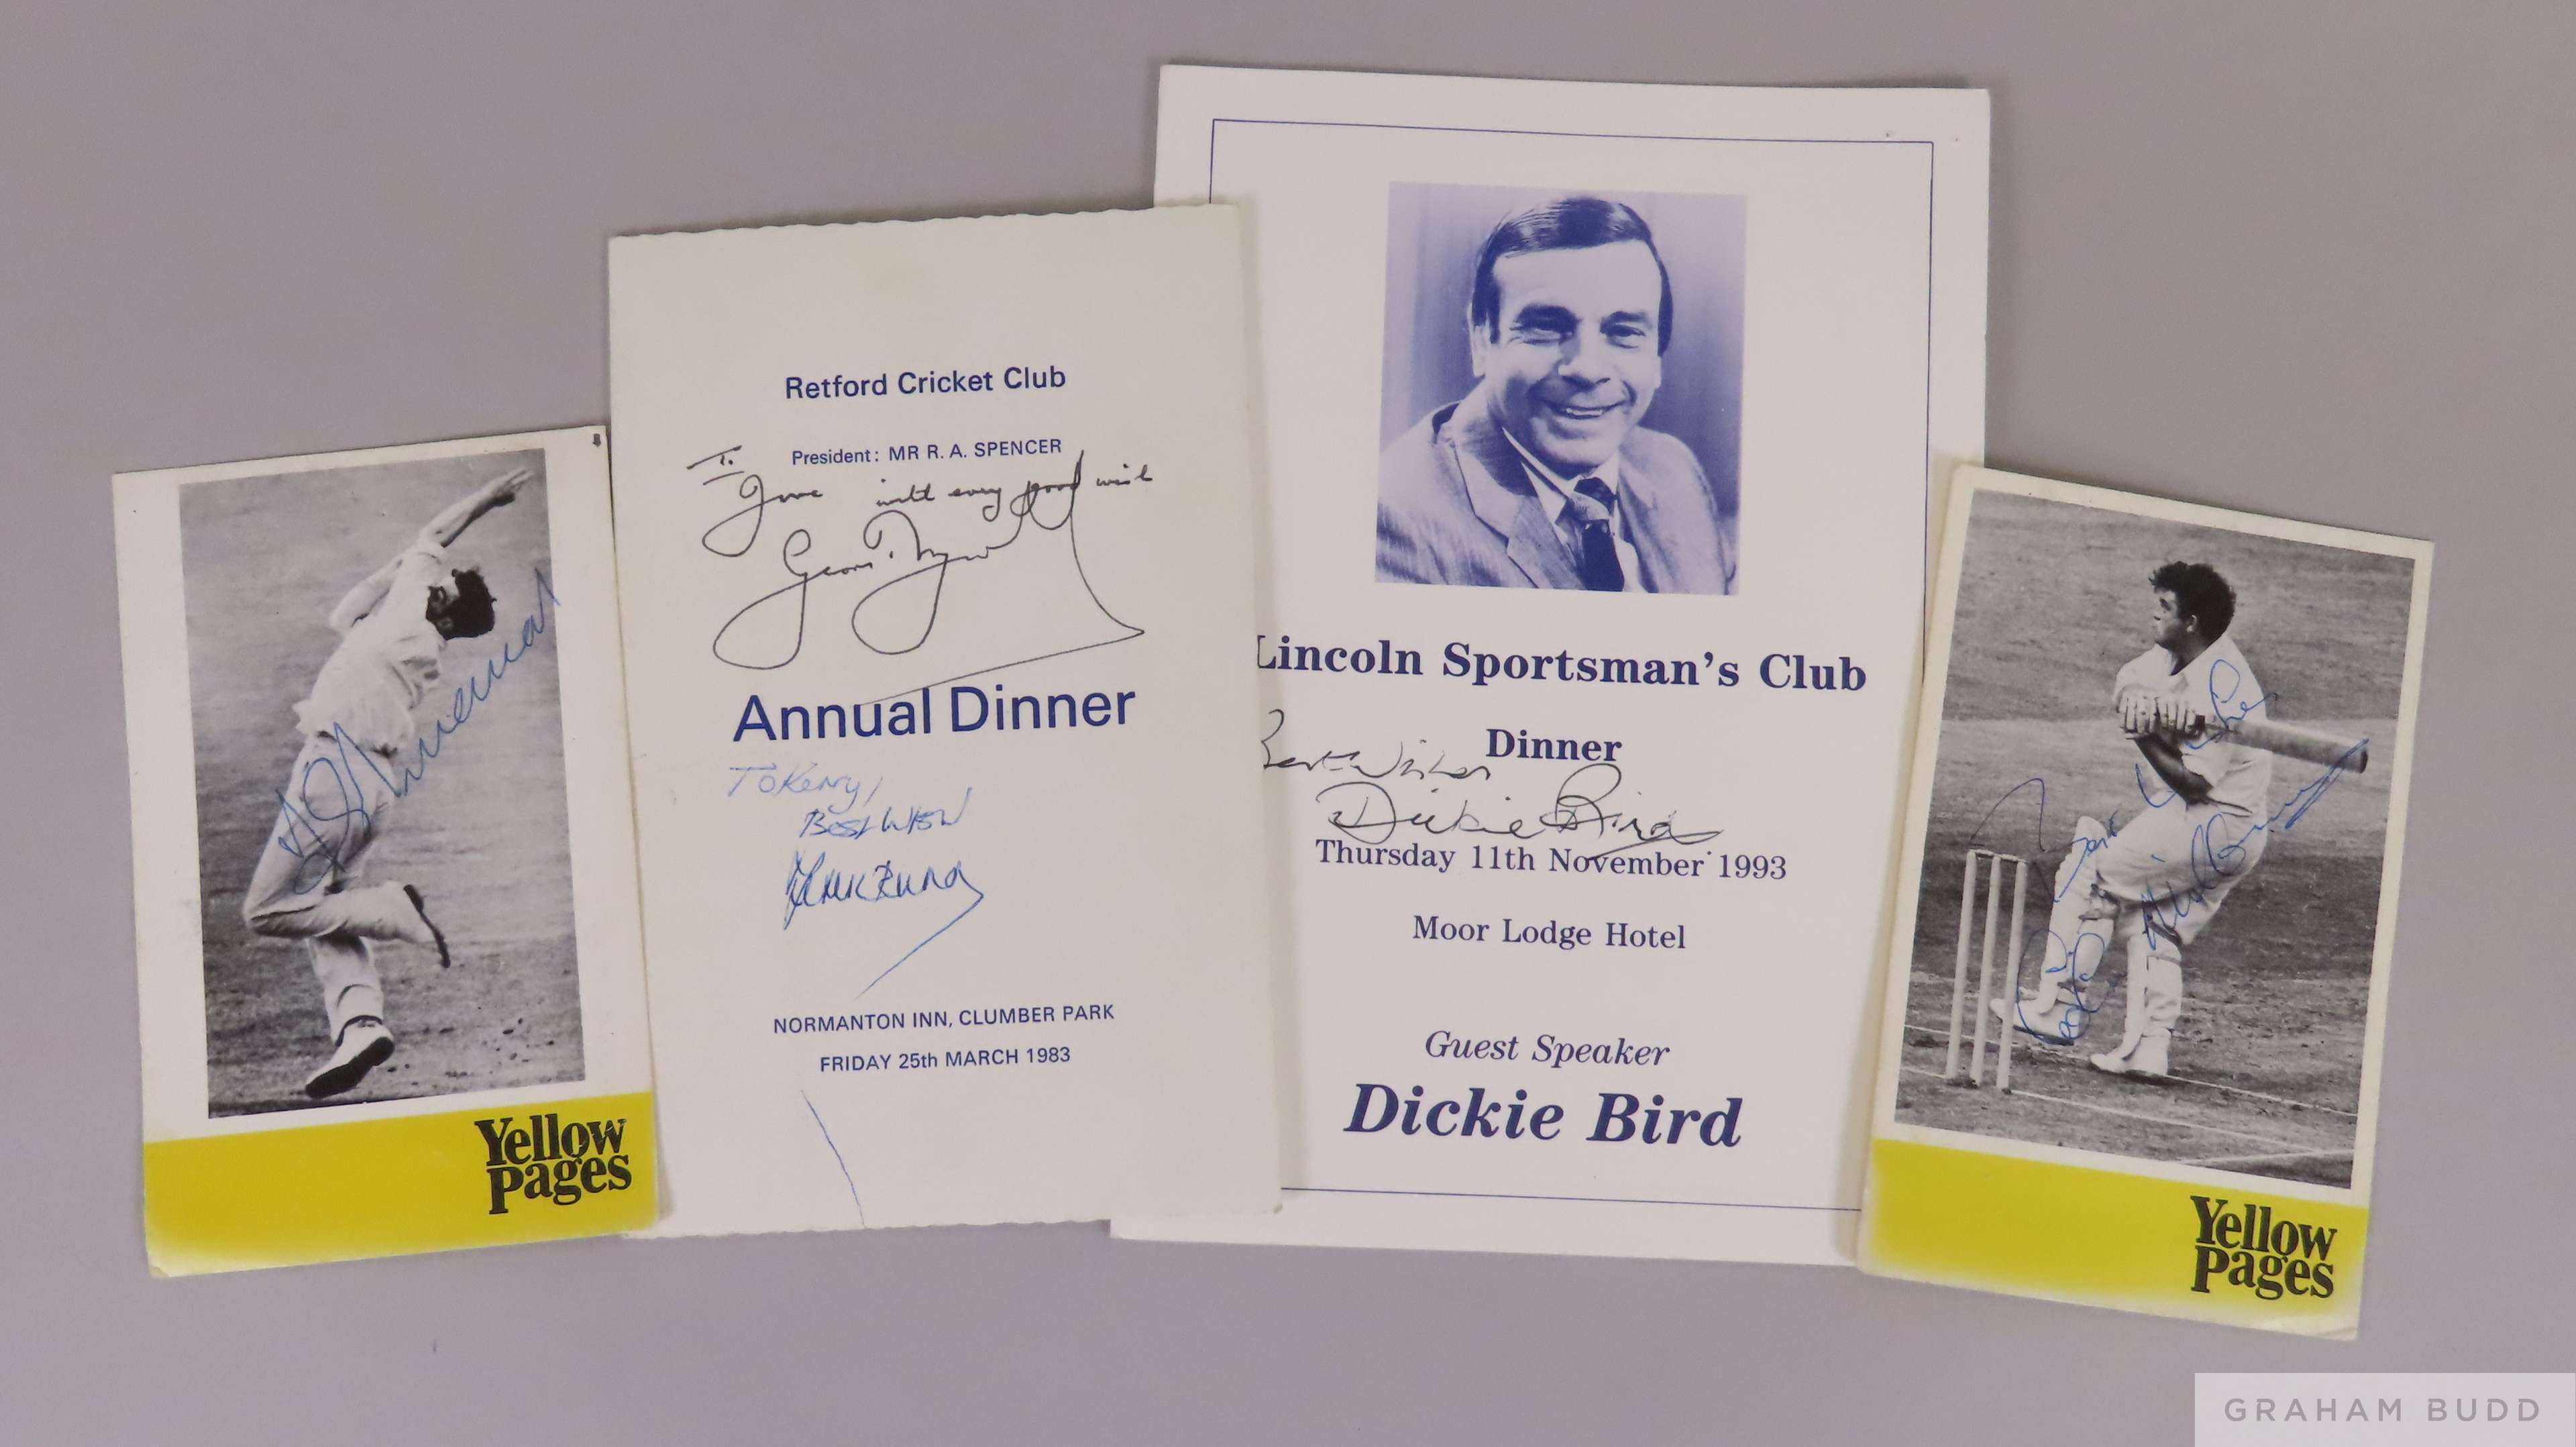 F S Trueman
Yellow
Pages
Retford Cricket Club
President: MR R. A. SPENCER
To
with every good wish
Annual Dinner
To Kerry,
Best Wishes
NORMANTON INN, CLUMBER PARK
FRIDAY 25th MARCH 1983
Lincoln Sportsman's Club
Dinner
Best Wishes
Dickie Bird
Thursday 11th November 1993
Moor Lodge Hotel
Guest Speaker
Dickie Bird
Best Wishes
Colin Milburn
Yellow
Pages
GRAHAM BUDD